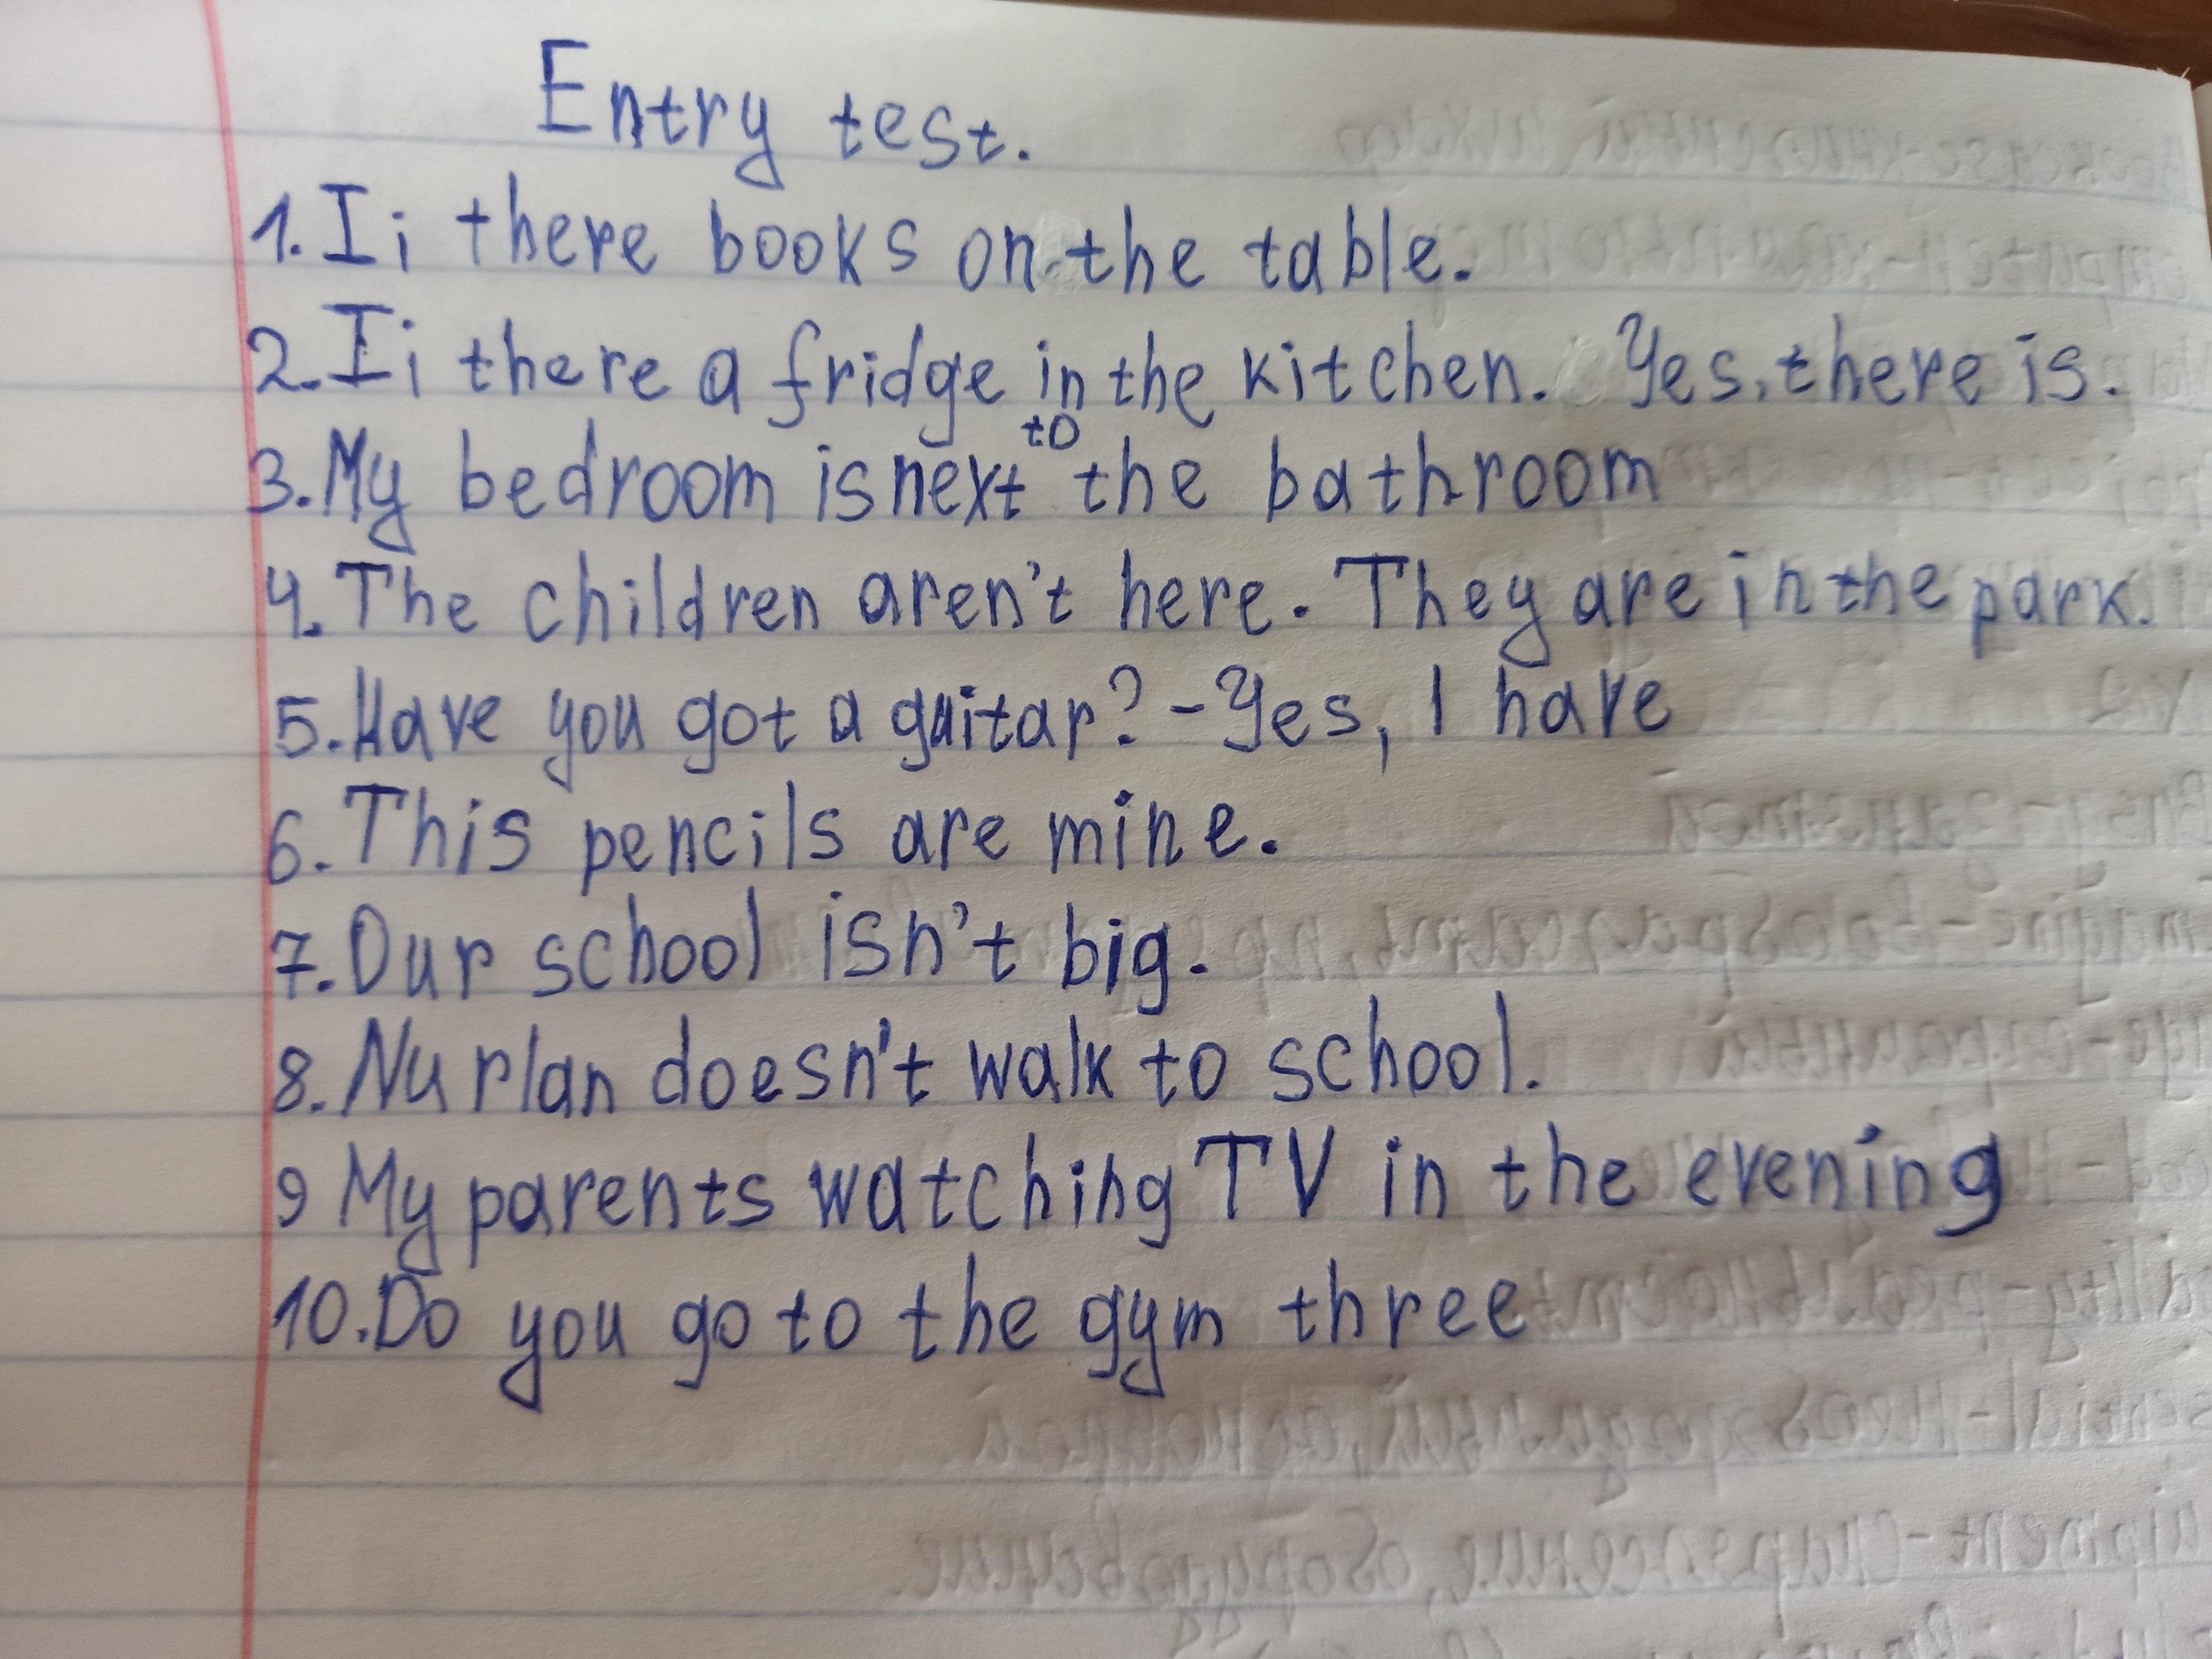 Entry test.
1. Ii there books on the table.
2. Ii there a fridge in the kitchen. Yes, there is.
3. My bedroom is next to the bathroom
4. The children aren't here. They are in the park.
5. Have you got a guitar? - Yes, I have
6. This pencils are mine.
7. Our school isn't big.
8. Nurlan doesn't walk to school.
9 My parents watching TV in the evening
10. Do you go to the gym three